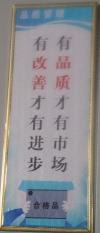 品质管理
有品质才有市场
有改善才有进步
合格品